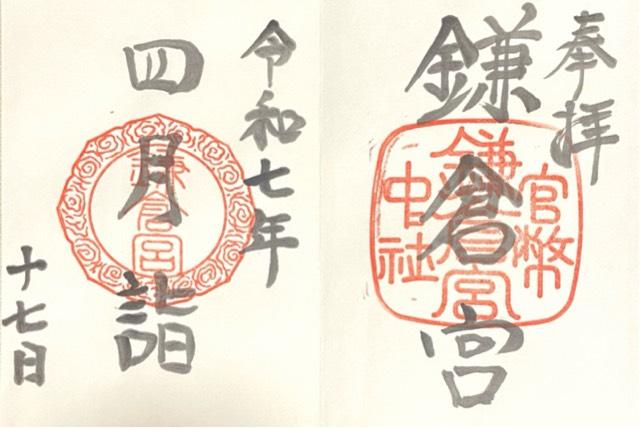 奉拝
鎌倉宮
官幣
鎌倉宮
中社
令和七年
四月詣
鎌倉宮
十七日